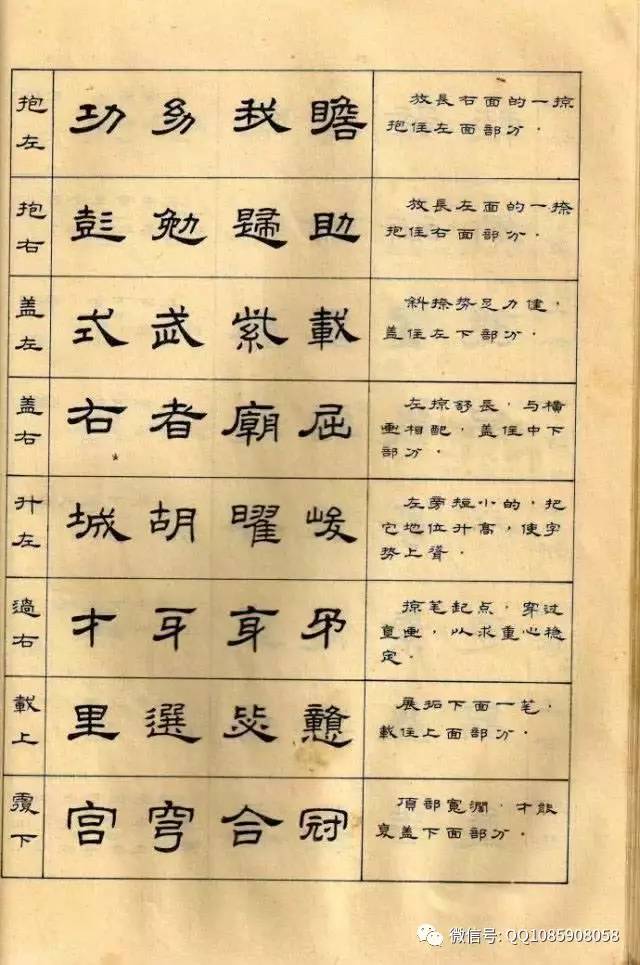 抱左
功 幼 我 瞻
放長右面的一掠
抱住左面部分．
抱右
彭 勉 歸 助
放長左面的一捺
抱住右面部分．
盖左
式 武 紫 載
斜捺势足力健，
盖住左下部分．
盖右
右 者 廟 屈
左掠舒長，与橫
画相配，盖住中下
部分．
升左
城 胡 曜 峻
左旁短小的，把
它地位升高，使字
势上聳．
過右
才 牙
掠笔起点，穿过
直画，以求重心稳
定．
載上
里 選
展拓下面一笔，
載住上面部分．
覆下
宫 穹 合 冠
頂部寬濶，才能
覆盖下面部分．
微信号: QQ1085908058